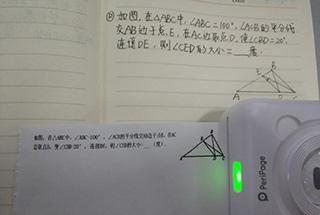 如图,在△ABC中,∠ABC=100°,∠ACB的平分线
交AB边于点E,在AC边取点D,使∠CBD=20°,
连接DE,则∠CED的大小=___度.
A
B
E
D
C
如图,在△ABC中,∠ABC=100°,∠ACB的平分线交AB边于点E,在AC
边取点D,使∠CBD=20°,连接DE,则∠CED的大小=___(度).
PeriPage